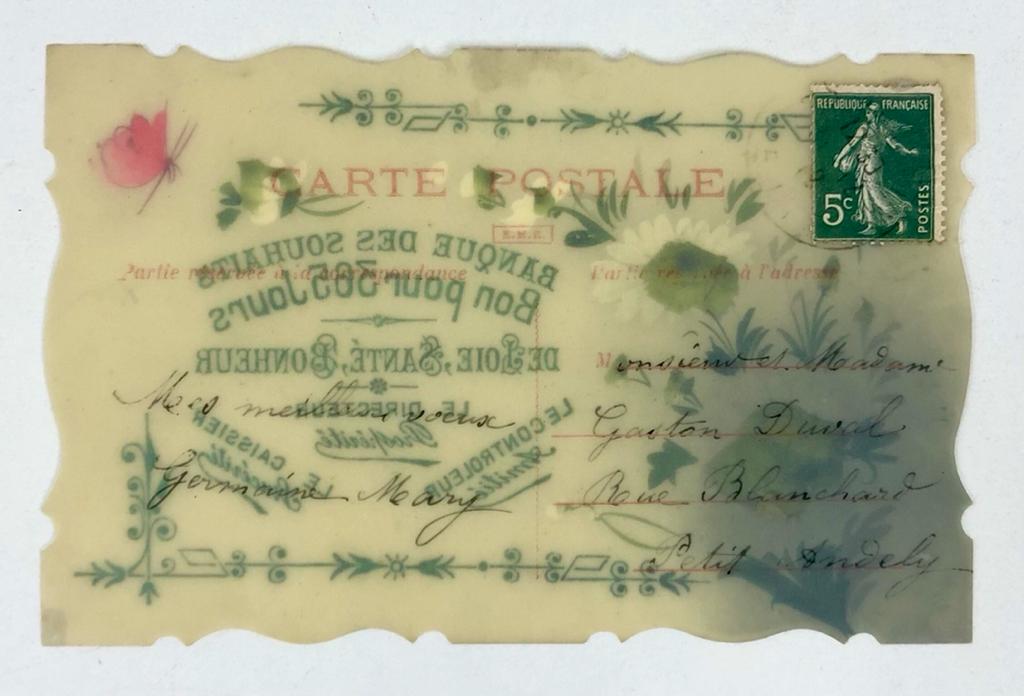 CARTE POSTALE
E.M.E.
REPUBLIQUE FRANÇAISE
5c
POSTES
Partie réservée à la correspondance
Partie réservée à l'adresse
BANQUE DES SOUHAITS
Bon pour 365 Jours
DE JOIE, SANTÉ, BONHEUR
LE DIRECTEUR
Prospérité
LE CONTROLEUR
Amitié
LE CAISSIER
Mes meilleurs voeux
Germaine Mary
Monsieur et Madame
Gaston Duval
Rue Blanchard
Petit Andely